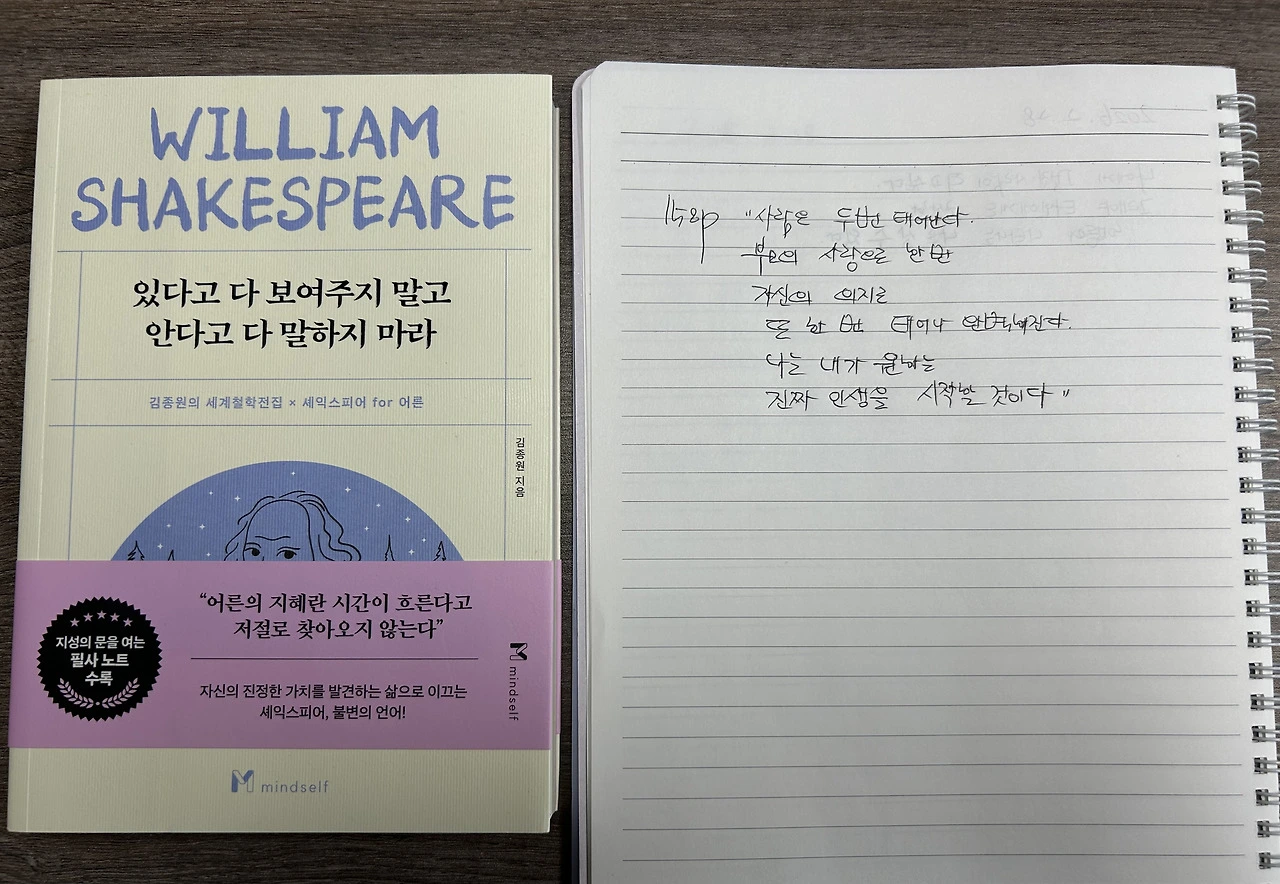 WILLIAM
SHAKESPEARE
있다고 다 보여주지 말고
안다고 다 말하지 마라
김종원의 세계철학전집 × 셰익스피어 for 어른
김종원 지음
“어른의 지혜란 시간이 흐른다고
저절로 찾아오지 않는다”
지성의 문을 여는
필사 노트
수록
자신의 진정한 가치를 발견하는 삶으로 이끄는
셰익스피어, 불변의 언어!
mindself
mindself
115p "사람은 두번 태어난다.
부모의 사랑으로 한 번
자신의 의지로
또 한 번 태어나 완벽해진다.
나는 내가 원하는
진짜 인생을 시작할 것이다"
2026. 2. 28